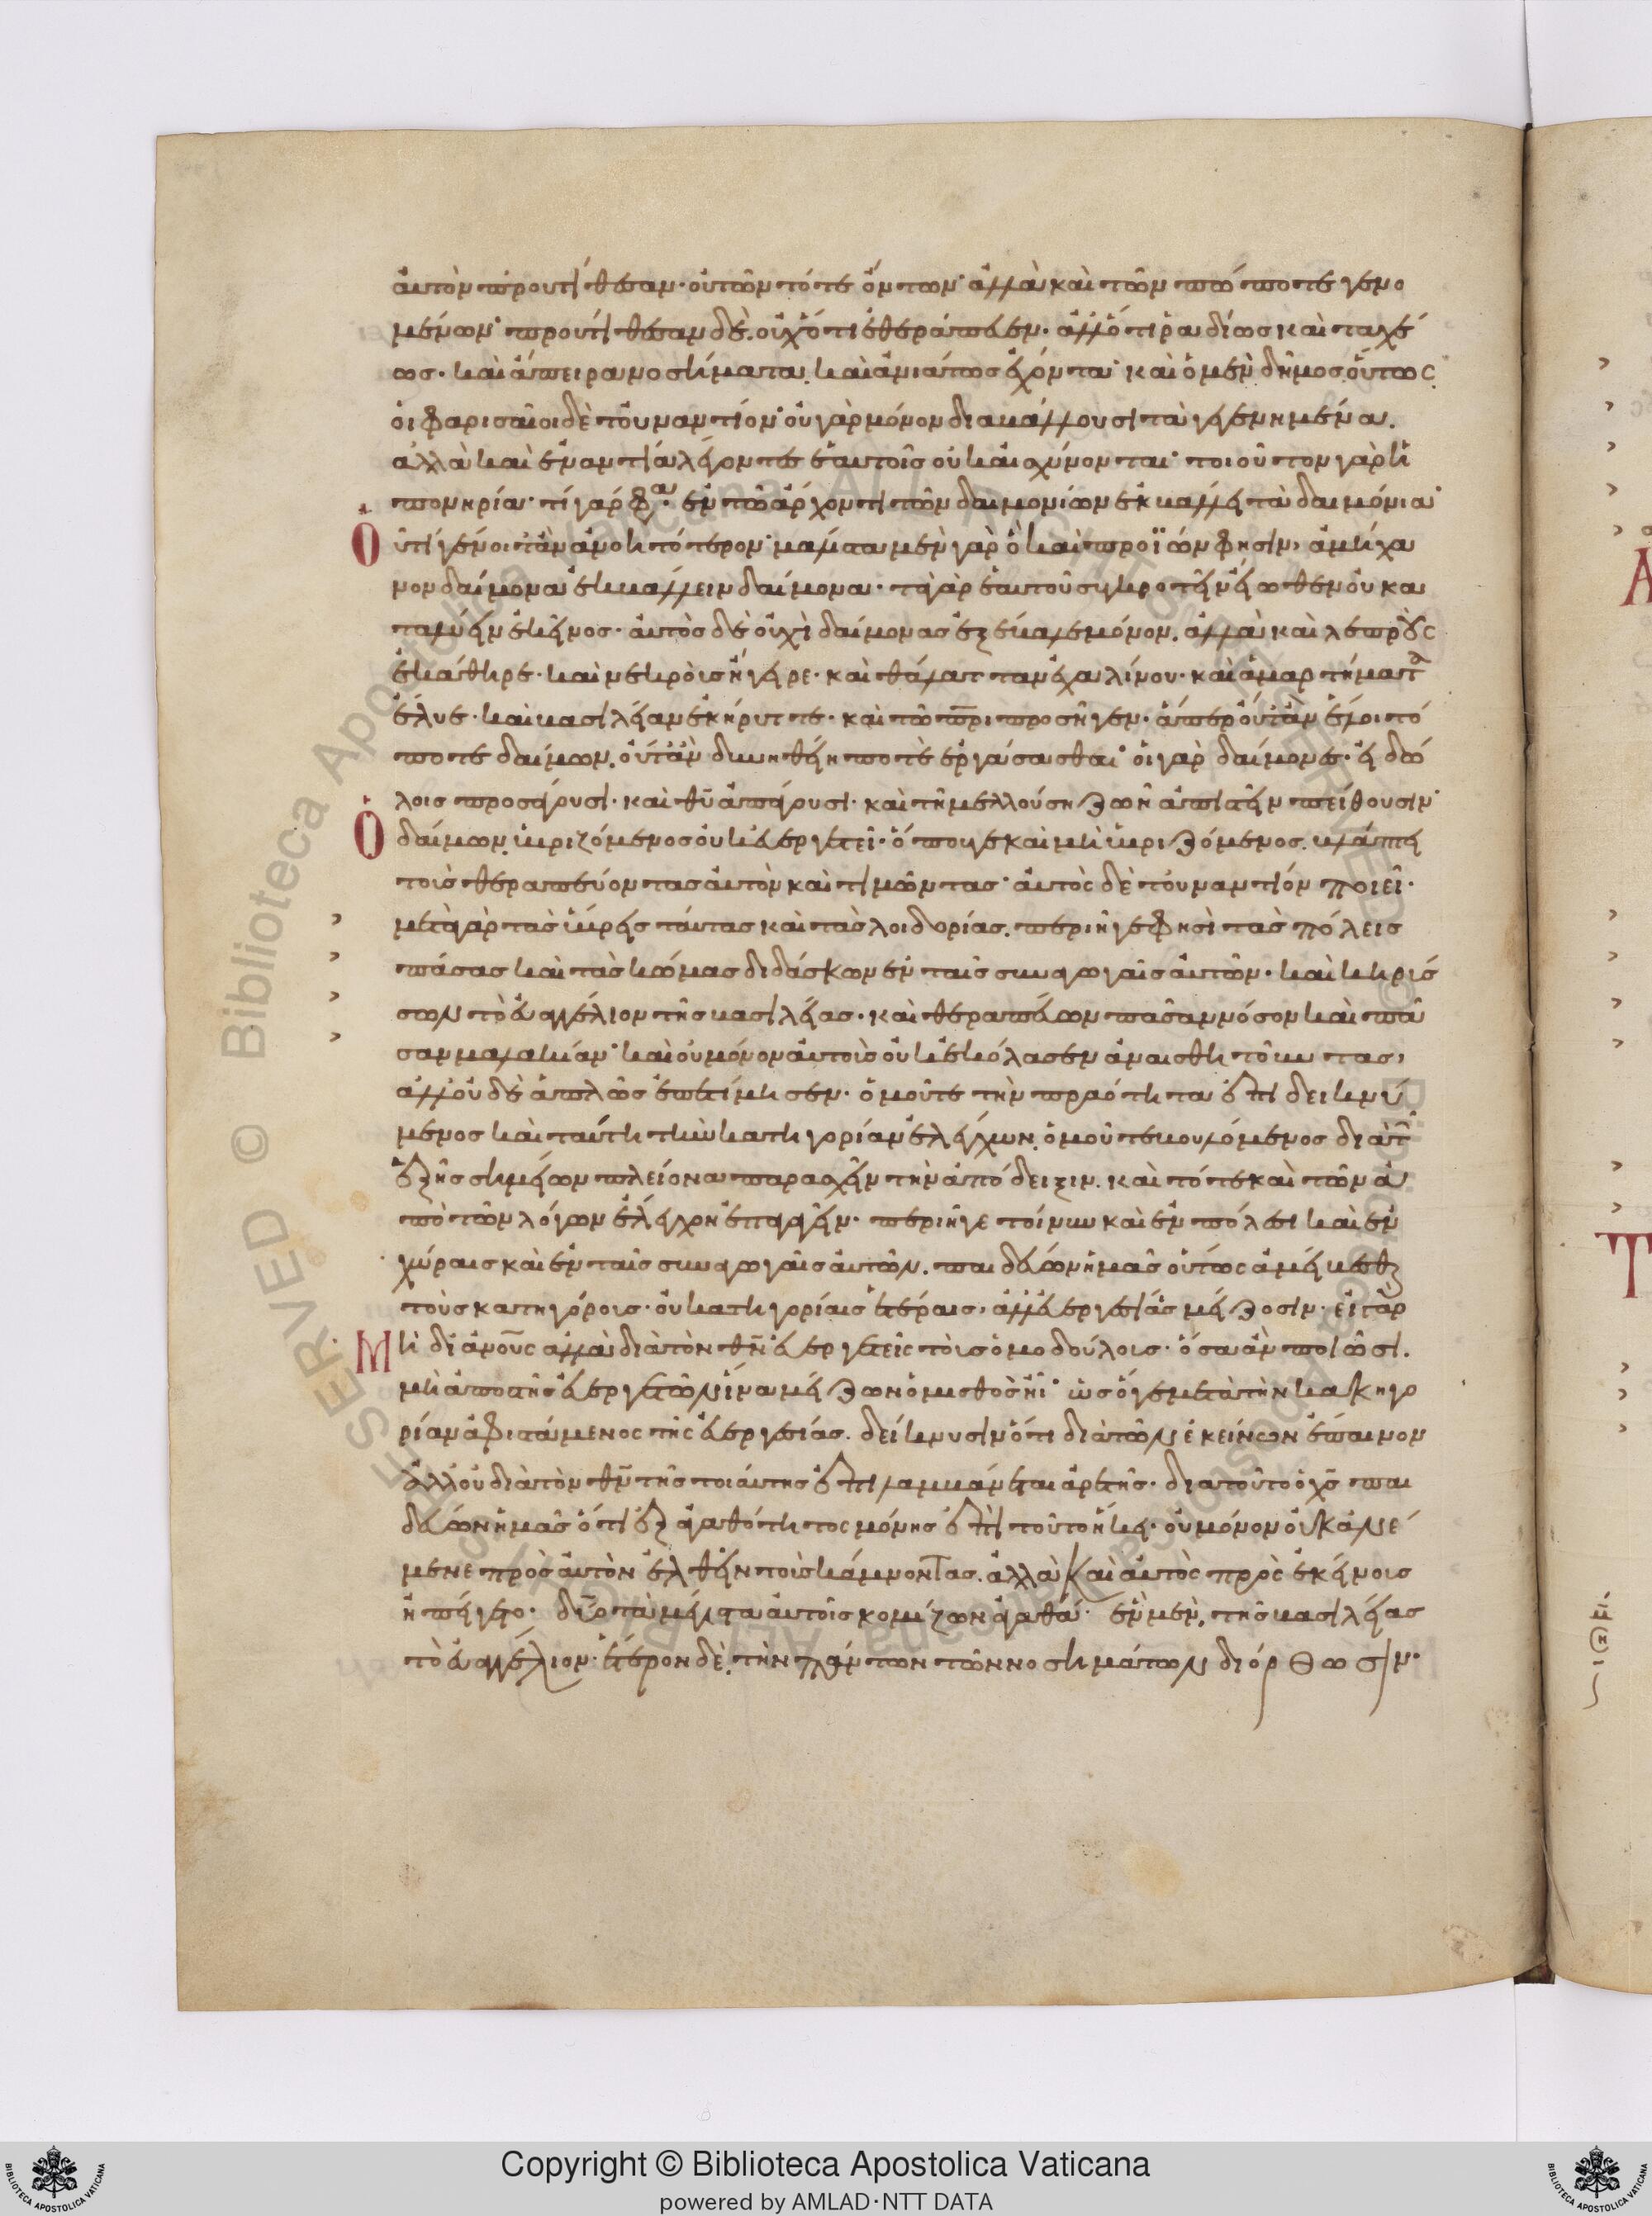 αὐτὸν προυτίθεσαν· οὐ τῶν τότε ὄντων· ἀλλὰ καὶ τῶν πώποτε γενο
μένων· προυτίθεσαν δὲ. οὐχ ὅτι ἐθεράπευεν· ἀλλ' ὅτι ῥαδίως καὶ ταχέ
ως· καὶ ἄπειρα νοσήματα. καὶ ἀνιάτως ἔχοντα· καὶ ὁ μὲν δῆμος. οὕτως
οἱ φαρισαῖοι δὲ τοὐναντίον· οὐ γὰρ μόνον διαβάλλουσι τὰ γεγενημένα.
ἀλλὰ καὶ ἐναντία λέγοντες ἑαυτοῖς οὐκ αἰσχύνονται· τοιοῦτον γὰρ ἡ
πονηρία· τί γάρ φα· ἐν τῷ ἄρχοντι τῶν δαιμονίων ἐκβάλλει τὰ δαιμόνια·
Οὗ τί γένοιτ' ἂν ἀνοητότερον· μάλιστα μὲν γὰρ ὃ καὶ προϊὼν φησίν, ἀμήχα
νον δαίμονα ἐκβάλλειν δαίμονα· τὰ γὰρ ἑαυτοῦ συγκροτεῖν εἴωθεν οὐ κα
ταλύειν ἐκεῖνος· αὐτὸς δὲ οὐχὶ δαίμονας ἐξέβαλε μόνον. ἀλλὰ καὶ λεπροὺς
ἐκάθηρε· καὶ νεκροὺς ἤγειρε· καὶ θάλατταν ἐχαλίνου· καὶ ἁμαρτήματα
ἔλυε· καὶ βασιλείαν ἐκήρυττε· καὶ τῷ πρι προσῆγεν· ἅπερ οὔτ' ἂν ἕλοιτό
ποτε δαίμων. οὔτ' ἂν δυνηθείη ποτὲ ἐργάσασθαι· οἱ γὰρ δαίμονες· εἰδώ
λοις προσάγουσι· καὶ θυ ἀπάγουσι· καὶ τῇ μελλούσῃ ζωῇ ἀπιστεῖν πείθουσιν·
Ὁ δαίμων ὑβριζόμενος οὐκ εὐεργετεῖ· ὅπου γε καὶ μὴ ὑβριζόμενος. βλάπτει
τοὺς θεραπεύοντας αὐτὸν καὶ τιμῶντας· αὐτὸς δὲ τοὐναντίον ποιεῖ·
μετὰ γὰρ τὰς ὕβρεις ταύτας καὶ τὰς λοιδορίας. περιῆγε φησὶ τὰς πόλεις
πάσας καὶ τὰς κώμας διδάσκων ἐν ταῖς συναγωγαῖς αὐτῶν· καὶ κηρύσ
σων τὸ εὐαγγέλιον τῆς βασιλείας· καὶ θεραπεύων πᾶσαν νόσον καὶ πᾶ
σαν μαλακίαν· καὶ οὐ μόνον αὐτοὺς οὐκ ἐκόλασεν ἀναισθητοῦντας,
ἀλλ' οὐδὲ ἁπλῶς ἐπετίμησεν· ὁμοῦ τε τὴν πραότητα ἐπιδεικνύ
μενος καὶ ταύτῃ τὴν κατηγορίαν ἐλέγχων. ὁμοῦ τε βουλόμενος διὰ τῶν
ἑξῆς σημείων πλείονα παρασχεῖν τὴν ἀπόδειξιν. καὶ τότε καὶ τὸν ἀ
πὸ τῶν λόγων ἔλεγχον ἐπαγαγεῖν· περιῆγε τοίνυν καὶ ἐν πόλεσι καὶ ἐν
χώραις καὶ ἐν ταῖς συναγωγαῖς αὐτῶν. παιδεύων ἡμᾶς οὕτως ἀμείβεσθαι
τοὺς κατηγόροις· οὐ κατηγορίαις ἑτέραις, ἀλλ' εὐεργεσίαις μείζοσιν· εἰ γὰρ
Μὴ δι' ἀνους ἀλλὰ διὰ τὸν θν εὐεργετεῖς τοὺς ὁμοδούλοις· ὅσα ἂν ποιῶσι.
μὴ ἀποστῇς εὐεργετῶν ἵνα μείζων ὁ μισθὸς ἦι· ὡς ὅγε μετὰ τὴν κακηγο
ρίαν ἀφιστάμενος τῆς εὐεργεσίας. δείκνυσιν ὅτι διὰ τῶν ἐκείνων ἔπαινον
ἀλλ' οὐ διὰ τὸν θν τῆς τοιαύτης ἐπιλαμβάνεται ἀρετῆς· διὰ τοῦτο ὁ χς παι
δεύων ἡμᾶς ὅτι ἐξ ἀγαθότητος μόνης ἐπὶ τοῦτο ἧκει· οὐ μόνον οὐκ ἀνέ
μενε πρὸς αὐτὸν ἐλθεῖν τοὺς κάμνοντας. ἀλλὰ καὶ αὐτὸς πρὸς ἐκείνοις
ἠπείγετο· δύο τὰ μέγιστα αὐτοῖς κομίζων ἀγαθά· ἓν μὲν. τῆς βασιλείας
τὸ εὐαγγέλιον· ἕτερον δὲ. τὴν πάντων τῶν νοσημάτων διόρθωσιν·